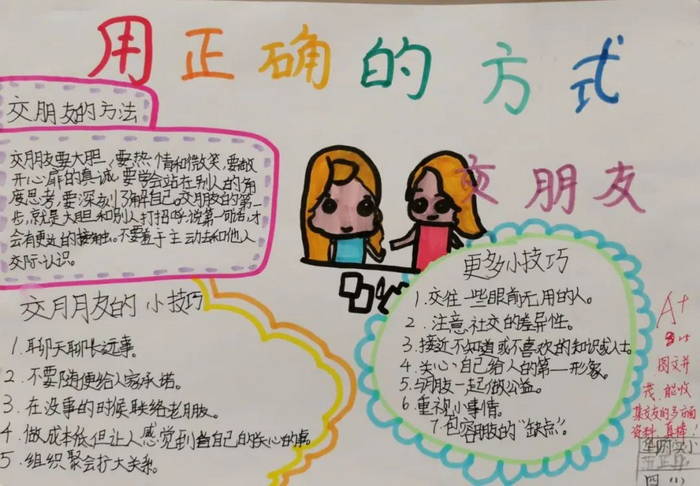 用正确的方式
交朋友
交朋友的方法
交朋友要大胆,要热情和微笑,要敞
开心扉的真诚,要学会站在别人的角
度思考,要深刻了解自己。交朋友的第一
步,就是大胆和别人打招呼,说第一句话,才
会有更近的接触。不要羞于主动去和他人
交际认识。
交朋友的小技巧
1.聊天聊长远事。
2.不要随便给人家承诺。
3.在没事的时候联络老朋友。
4.做成本低但让人感觉到自己的关心的事。
5.组织聚会扩大关系。
更多小技巧
1.交往一些眼前无用的人。
2.注意社交的差异性。
3.接近不知道或不喜欢的知识或人士。
4.关心自己给人的第一形象。
5.与朋友一起做公益。
6.重视小事情。
7.包容朋友的“缺点”。
A+
图文并
茂,能收
集交友的多方面
资料,真棒!
小
四(1)